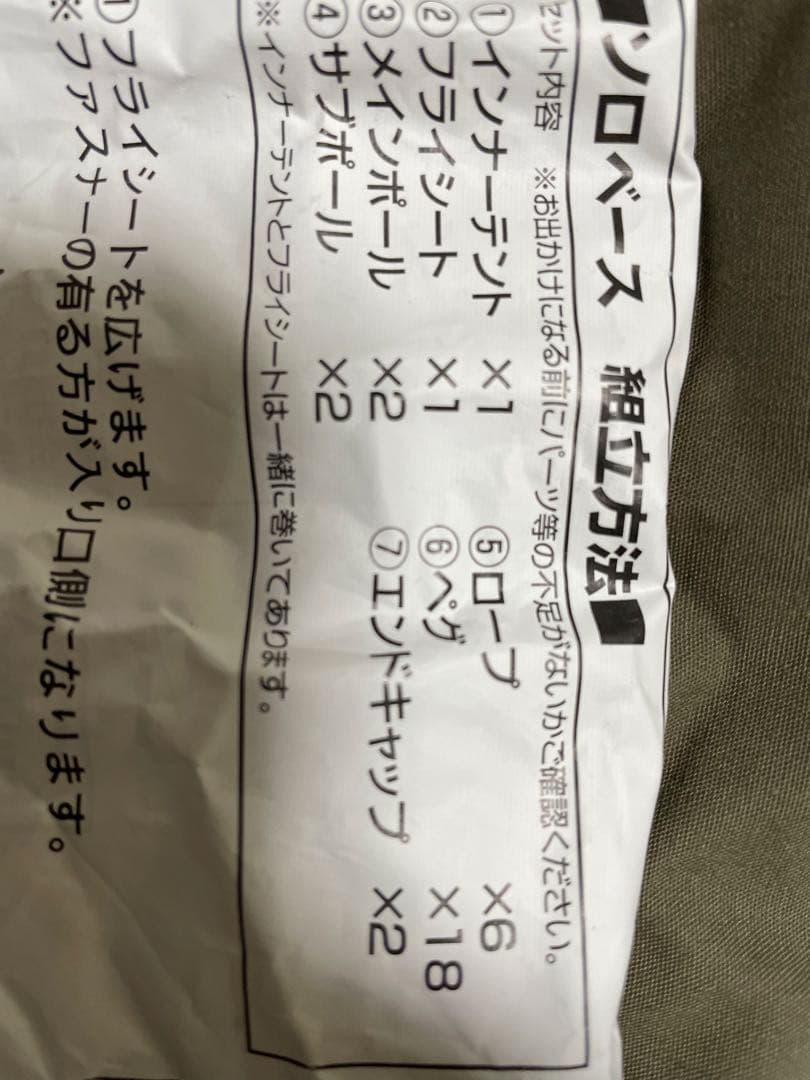 ソロベース 組立方法
セット内容 ※お出かけになる前にパーツ等の不足がないかご確認ください。
①インナーテント ×1 ⑤ロープ ×6
②フライシート ×1 ⑥ペグ ×18
③メインポール ×2 ⑦エンドキャップ ×2
④サブポール ×2
※インナーテントとフライシートは一緒に巻いてあります。
①フライシートを広げます。
※ファスナーの有る方が入り口側になります。